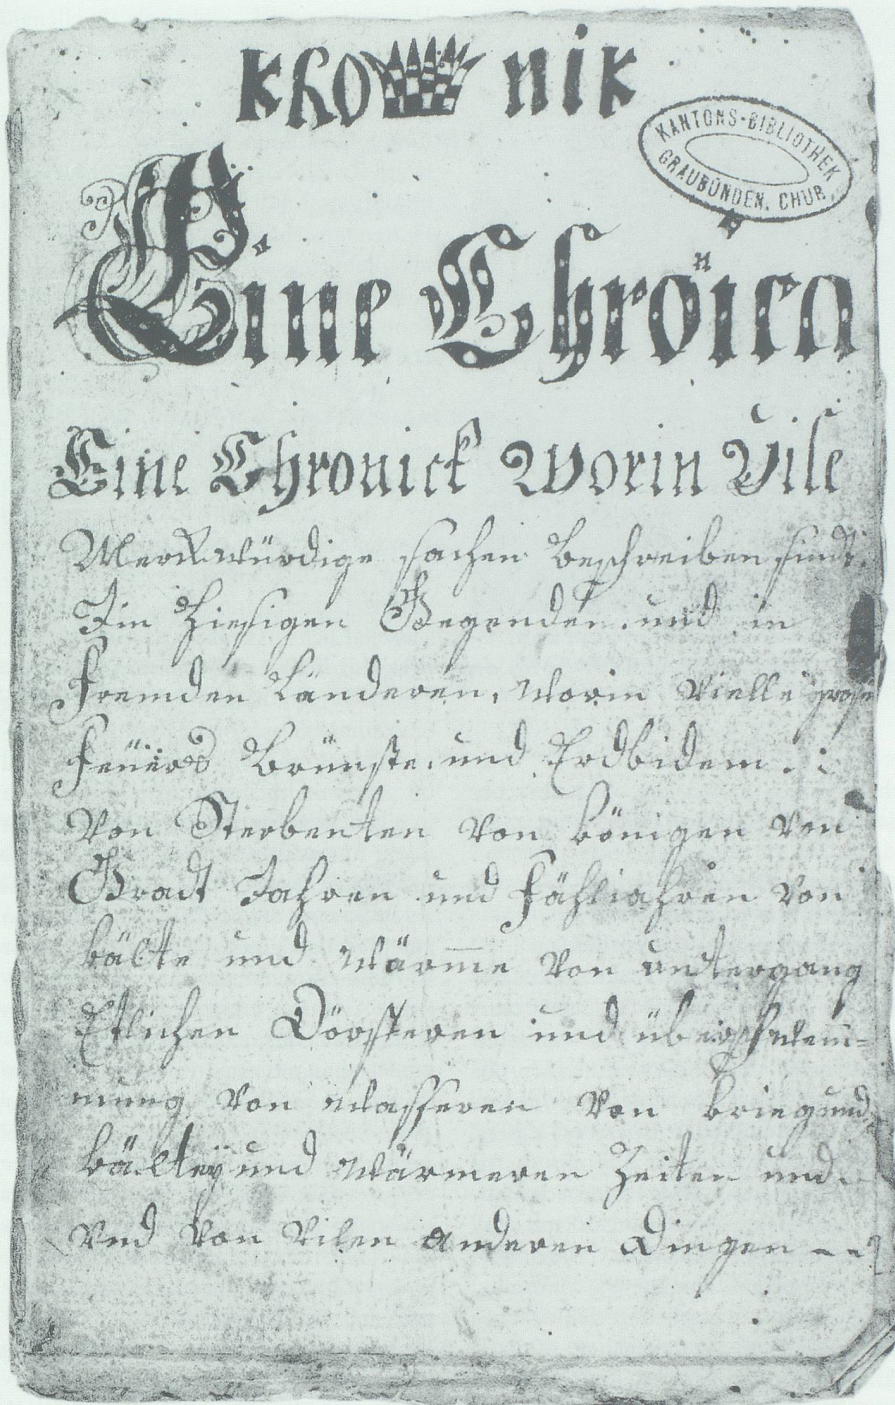 Kho nik
KANTONS-BIBLIOTHEK
GRAUBÜNDEN. CHUR.
Eine Chroica
n
Eine Chronick Worin Vile
Merckwürdige sachen beschreiben sindt.
Jin hiesigen Gegenden. und in
Fremden Länderen, worin vielle grose
Feüers brünste. und Erdbidem. :
von Sterbenten von königen von
Gradt Jahren und Fähljahren von
kälte und wärme von untergang
Etlichen Dörfferen und überschwem=
mung von wasseren von krieg und
kälteÿ und wärmeren Zeiten und.
vnd von vilen anderen Dingen